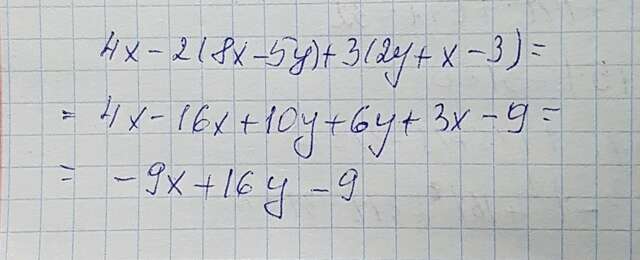 4x-2(8x-5y)+3(2y+x-3)=
= 4x-16x+10y+6y+3x-9=
= -9x+16y-9